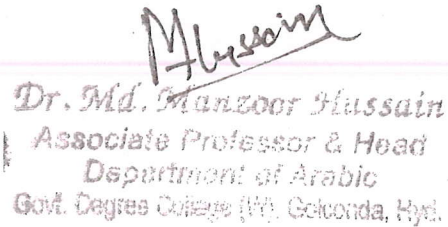 MHussain
Dr. Md. Manzoor Hussain
Associate Professor & Head
Department of Arabic
Govt. Degree College (W), Golconda, Hyd.